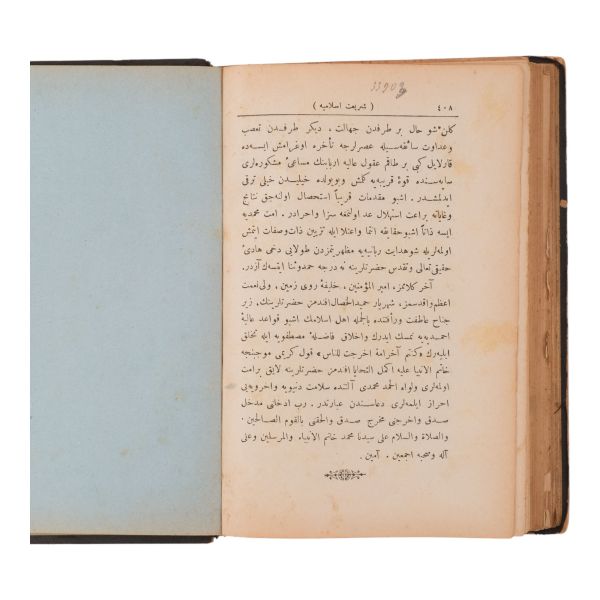 33903
٤٠٨
( شریعت اسلامیه )
كلن شو حال بر طرفدن جهالت، دیكر طرفدن تعصب
وعداوت سائقه سیله عصرلرجه تأخره اوغرامش ایسه ده
قارلایل كبی بر طاقم عقول عالیه اربابنك مساعئ مشكوره لری
سایه سنده قوهٔ قریبه یه كلش وبویولده خیلیدن خیلی ترقی
ایدلمشدر . اشبو مقدمات قریباً استحصال اولنه جق نتایج
وغایاته براعت استهلال عد اولنمغه سزا واحرادر . امت محمدیه
ایسه ذاتاً اشبو حقایقه انتما واعتلا ایله تزیین ذات وصفات ایتمش
اولمه لریله شو هدایت ربانیه یه مظهریتمزدن طولایی دخی هادئ
حقیقی تعالی وتقدس حضرتلرینه نه درجه حمد وثنا ایتسه ك آزدر.
آخر كلامز، امیر المؤمنین، خلیفهٔ روی زمین، ولی نعمت
اعظم واقدسمز، شهریار حمید الخصال افندمز حضرتلرینك، زیر
جناح عاطفت ورأفتنده بالجمله اهل اسلامك اشبو قواعد عالیهٔ
احمدیه یه تمسك ایدرك واخلاق فاضلهٔ مصطفویه ایله تخلق
ایلیه رك «كنتم خیر امة اخرجت للناس» قول كریمی موجبنجه
خاتم الانبیا علیه اكمل التحایا افندمز حضرتلرینه لایق بر امت
اولمه لری ولواء الحمد محمدی آلتنده سلامت دنیویه واخرویه یی
احراز ایلمه لری دعاسندن عبارتدر . رب ادخلنی مدخل
صدق واخرجنی مخرج صدق والحقنی بالقوم الصالحین .
والصلاة والسلام علی سیدنا محمد خاتم الانبیاء والمرسلین وعلی
آله وصحبه اجمعین . آمین .